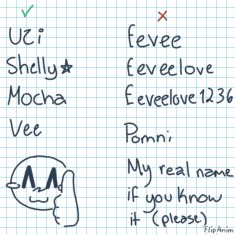 Uzi
Shelly☆
Mocha
Vee
Eevee
Eeveelove
Eeveelove1236
Pomni
My real name
if you know
it (please)
FlipAnim